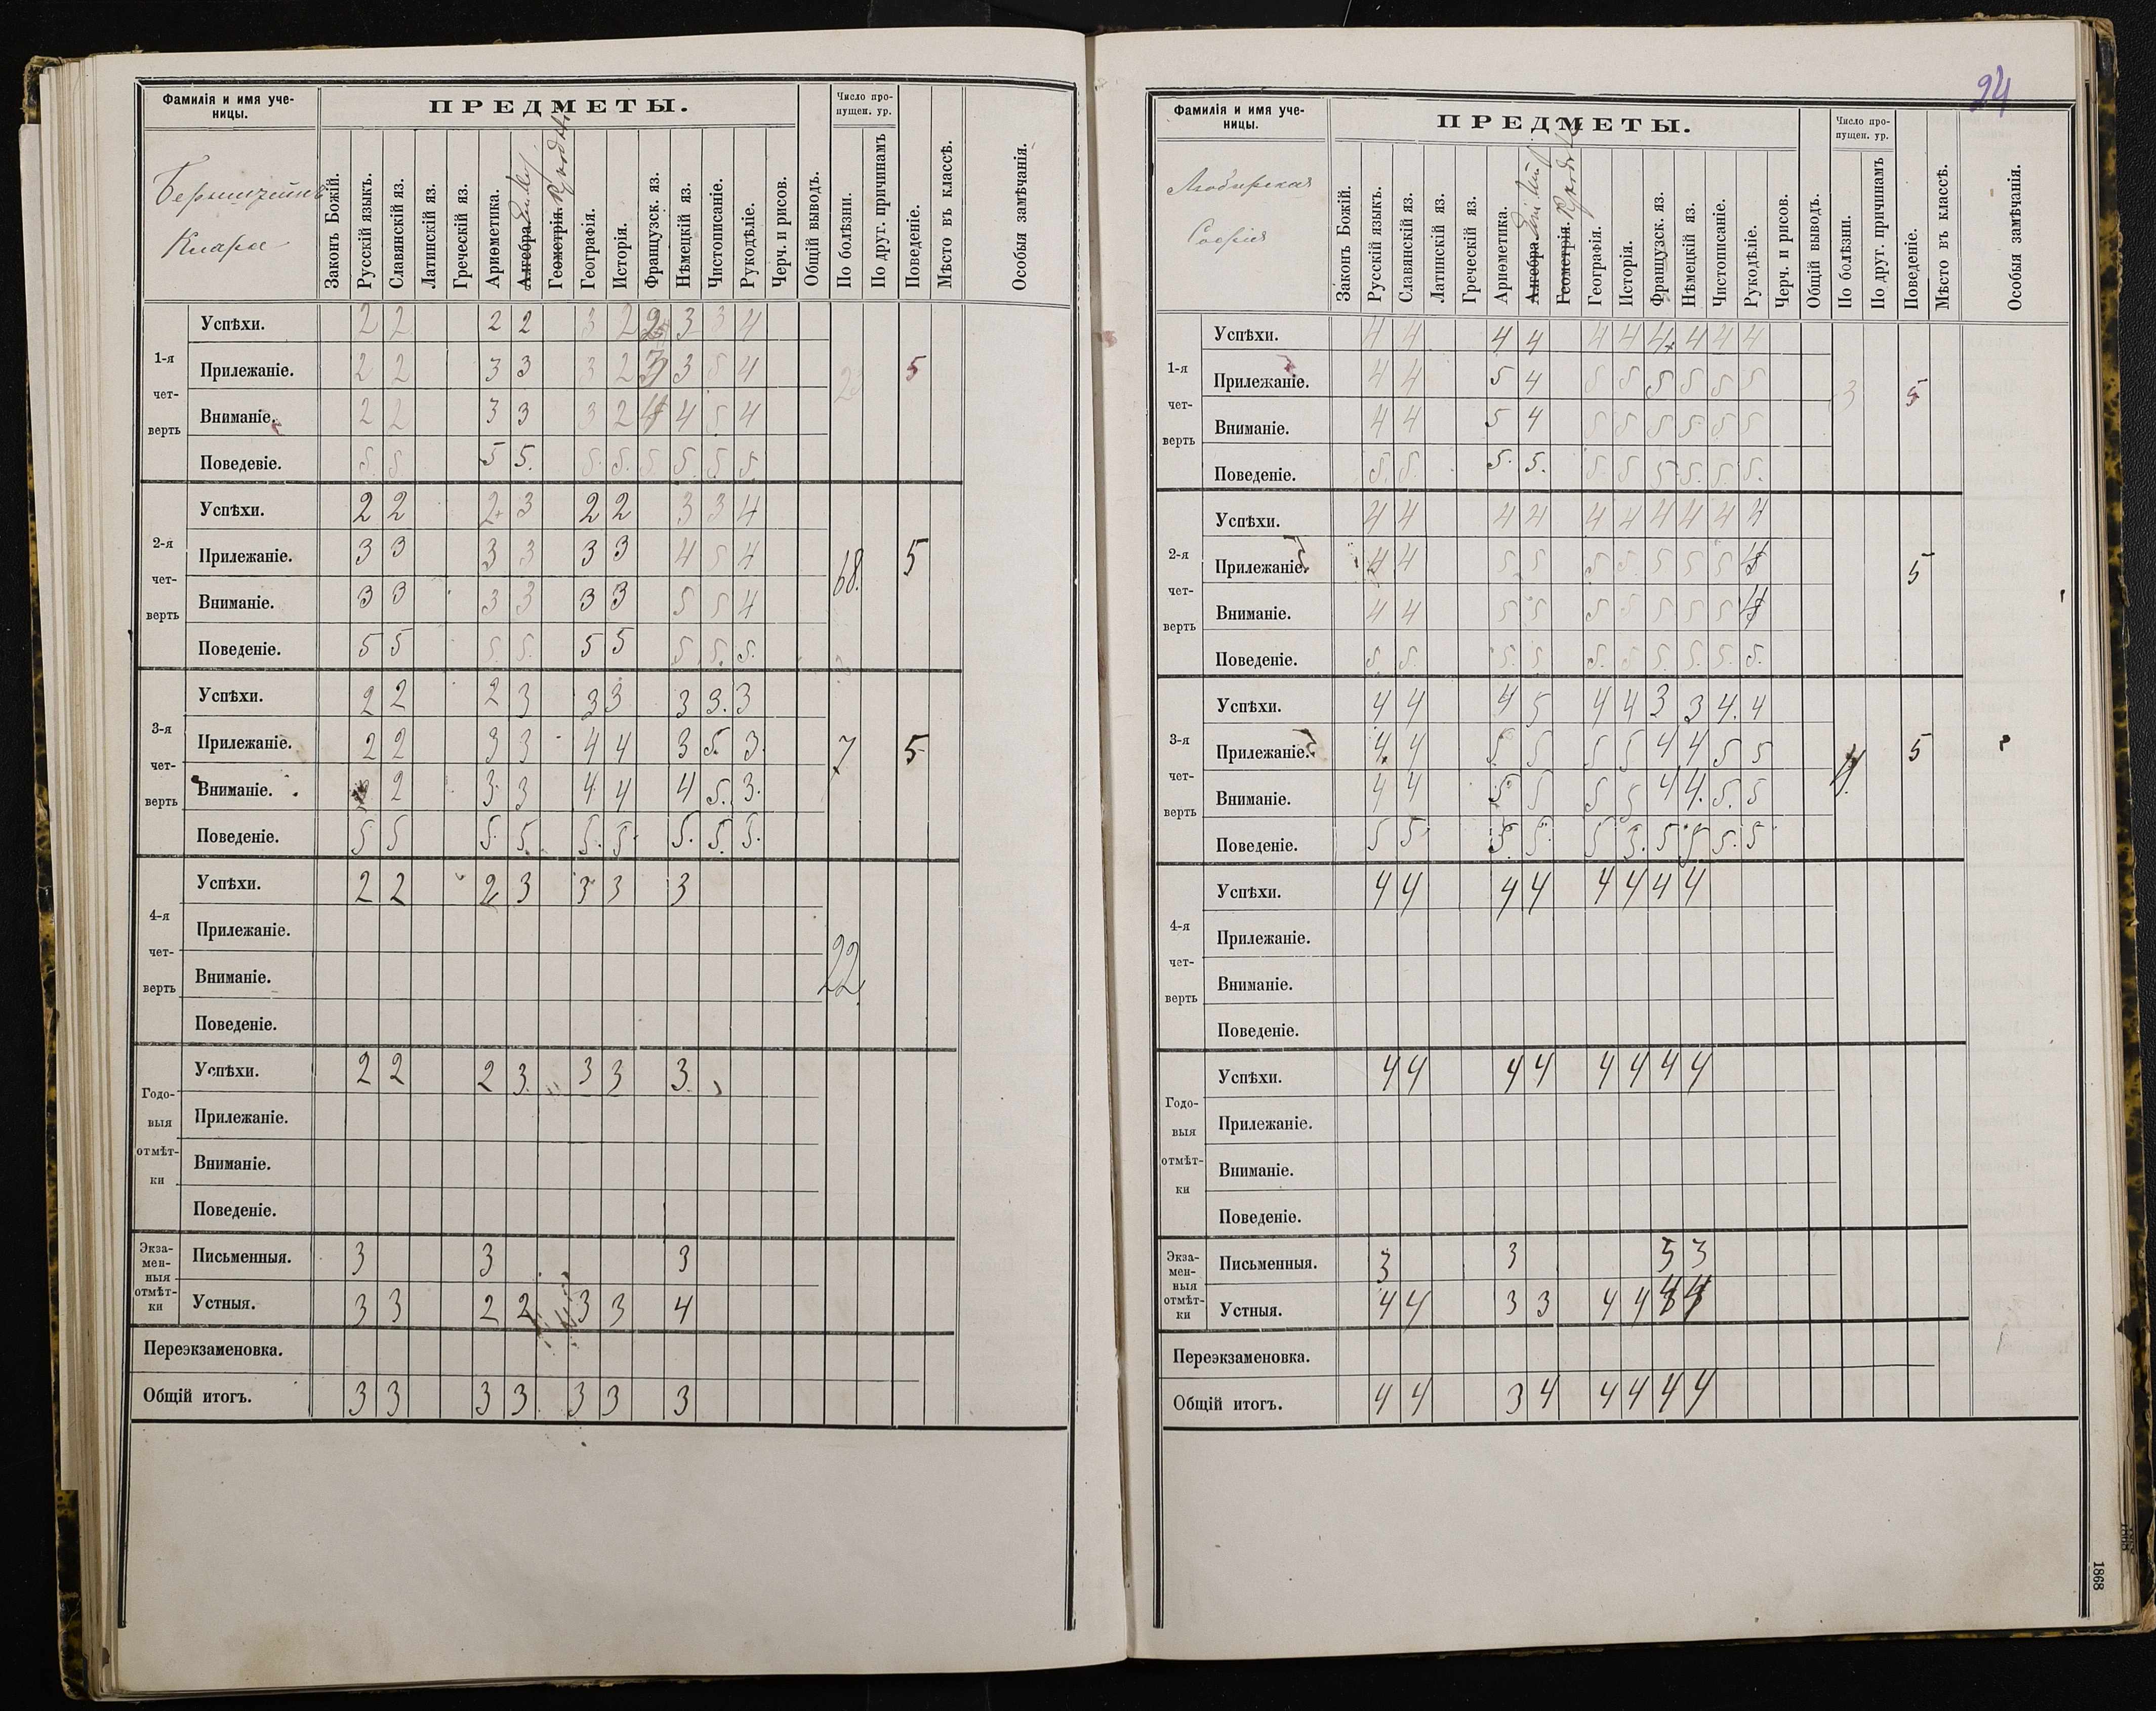 24
Фамилія и имя уче-
ницы.
ПРЕДМЕТЫ.
Число про-
пущен. ур.
Клара
Законъ Божій.
Русскій языкъ.
Славянскій яз.
Латинскій яз.
Греческій яз.
Ариѳметика.
Алгебра.
Геометрія.
Географія.
Исторія.
Французск. яз.
Нѣмецкій яз.
Чистописаніе.
Рукодѣліе.
Черч. и рисов.
Общій выводъ.
По болѣзни.
По друг. причинамъ
Поведеніе.
Мѣсто въ классѣ.
Особыя замѣчанія.
1-я
чет-
верть
Успѣхи. 2 2 2 2 3 2 2 3 3 4
Прилежаніе. 2 2 3 3 3 2 3 3 5 4 5
Вниманіе. 2 2 3 3 3 2 4 4 5 4
Поведевіе. 5. 5. 5 5. 5. 5. 5 5. 5. 5.
2-я
чет-
верть
Успѣхи. 2 2 2 3 2 2 3 3 4
Прилежаніе. 3 3 3 3 3 3 4 5 4 68. 5
Вниманіе. 3 3 3 3 3 3 5 5 4
Поведеніе. 5 5 5. 5. 5 5 5. 5. 5.
3-я
чет-
верть
Успѣхи. 2 2 2 3 3 3 3 3. 3
Прилежаніе. 2 2 3 3 4 4 3 5. 3. 7 5
Вниманіе. 2 3. 3 4 4 4 5. 3.
Поведеніе. 5 5 5. 5. 5. 5. 5. 5. 5.
4-я
чет-
верть
Успѣхи. 2 2 2 3 3 3 3
Прилежаніе.
Вниманіе. 22.
Поведеніе.
Годо-
выя
отмѣт-
ки
Успѣхи. 2 2 2 3. 3 3 3.
Прилежаніе.
Вниманіе.
Поведеніе.
Экза-
мен-
ныя
отмѣт-
ки
Письменныя. 3 3 3
Устныя. 3 3 2 2 3 3 4
Переэкзаменовка.
Общій итогъ. 3 3 3 3 3 3 3
Фамилія и имя уче-
ницы.
ПРЕДМЕТЫ.
Число про-
пущен. ур.
Софія
Законъ Божій.
Русскій языкъ.
Славянскій яз.
Латинскій яз.
Греческій яз.
Ариѳметика.
Алгебра.
Геометрія.
Географія.
Исторія.
Французск. яз.
Нѣмецкій яз.
Чистописаніе.
Рукодѣліе.
Черч. и рисов.
Общій выводъ.
По болѣзни.
По друг. причинамъ
Поведеніе.
Мѣсто въ классѣ.
Особыя замѣчанія.
1-я
чет-
верть
Успѣхи. 4 4 4 4 4 4 4 4 4 4
Прилежаніе. 4 4 5 4 5 5 5 5 5 5 3 5
Вниманіе. 4 4 5 4 5 5 5 5 5 5
Поведеніе. 5. 5. 5. 5. 5 5 5 5. 5. 5.
2-я
чет-
верть
Успѣхи. 4 4 4 4 4 4 4 4 4 4
Прилежаніе. 4 4 5 5 5 5 5 5 5 4 5
Вниманіе. 4 4 5 5 5 5 5 5 5 4
Поведеніе. 5. 5. 5. 5. 5. 5 5. 5. 5. 5.
3-я
чет-
верть
Успѣхи. 4 4 4 5 4 4 3 3 4. 4
Прилежаніе. 4 4 5 5 5 5 4 4 5 5 4. 5
Вниманіе. 4 4 5 5 5 5 4 4. 5. 5
Поведеніе. 5 5 5. 5. 5 5. 5 5 5. 5
4-я
чет-
верть
Успѣхи. 4 4 4 4 4 4 4 4
Прилежаніе.
Вниманіе.
Поведеніе.
Годо-
выя
отмѣт-
ки
Успѣхи. 4 4 4 4 4 4 4 4
Прилежаніе.
Вниманіе.
Поведеніе.
Экза-
мен-
ныя
отмѣт-
ки
Письменныя. 3 3 5 3
Устныя. 4 4 3 3 4 4 4 4
Переэкзаменовка.
Общій итогъ. 4 4 3 4 4 4 4 4
1868